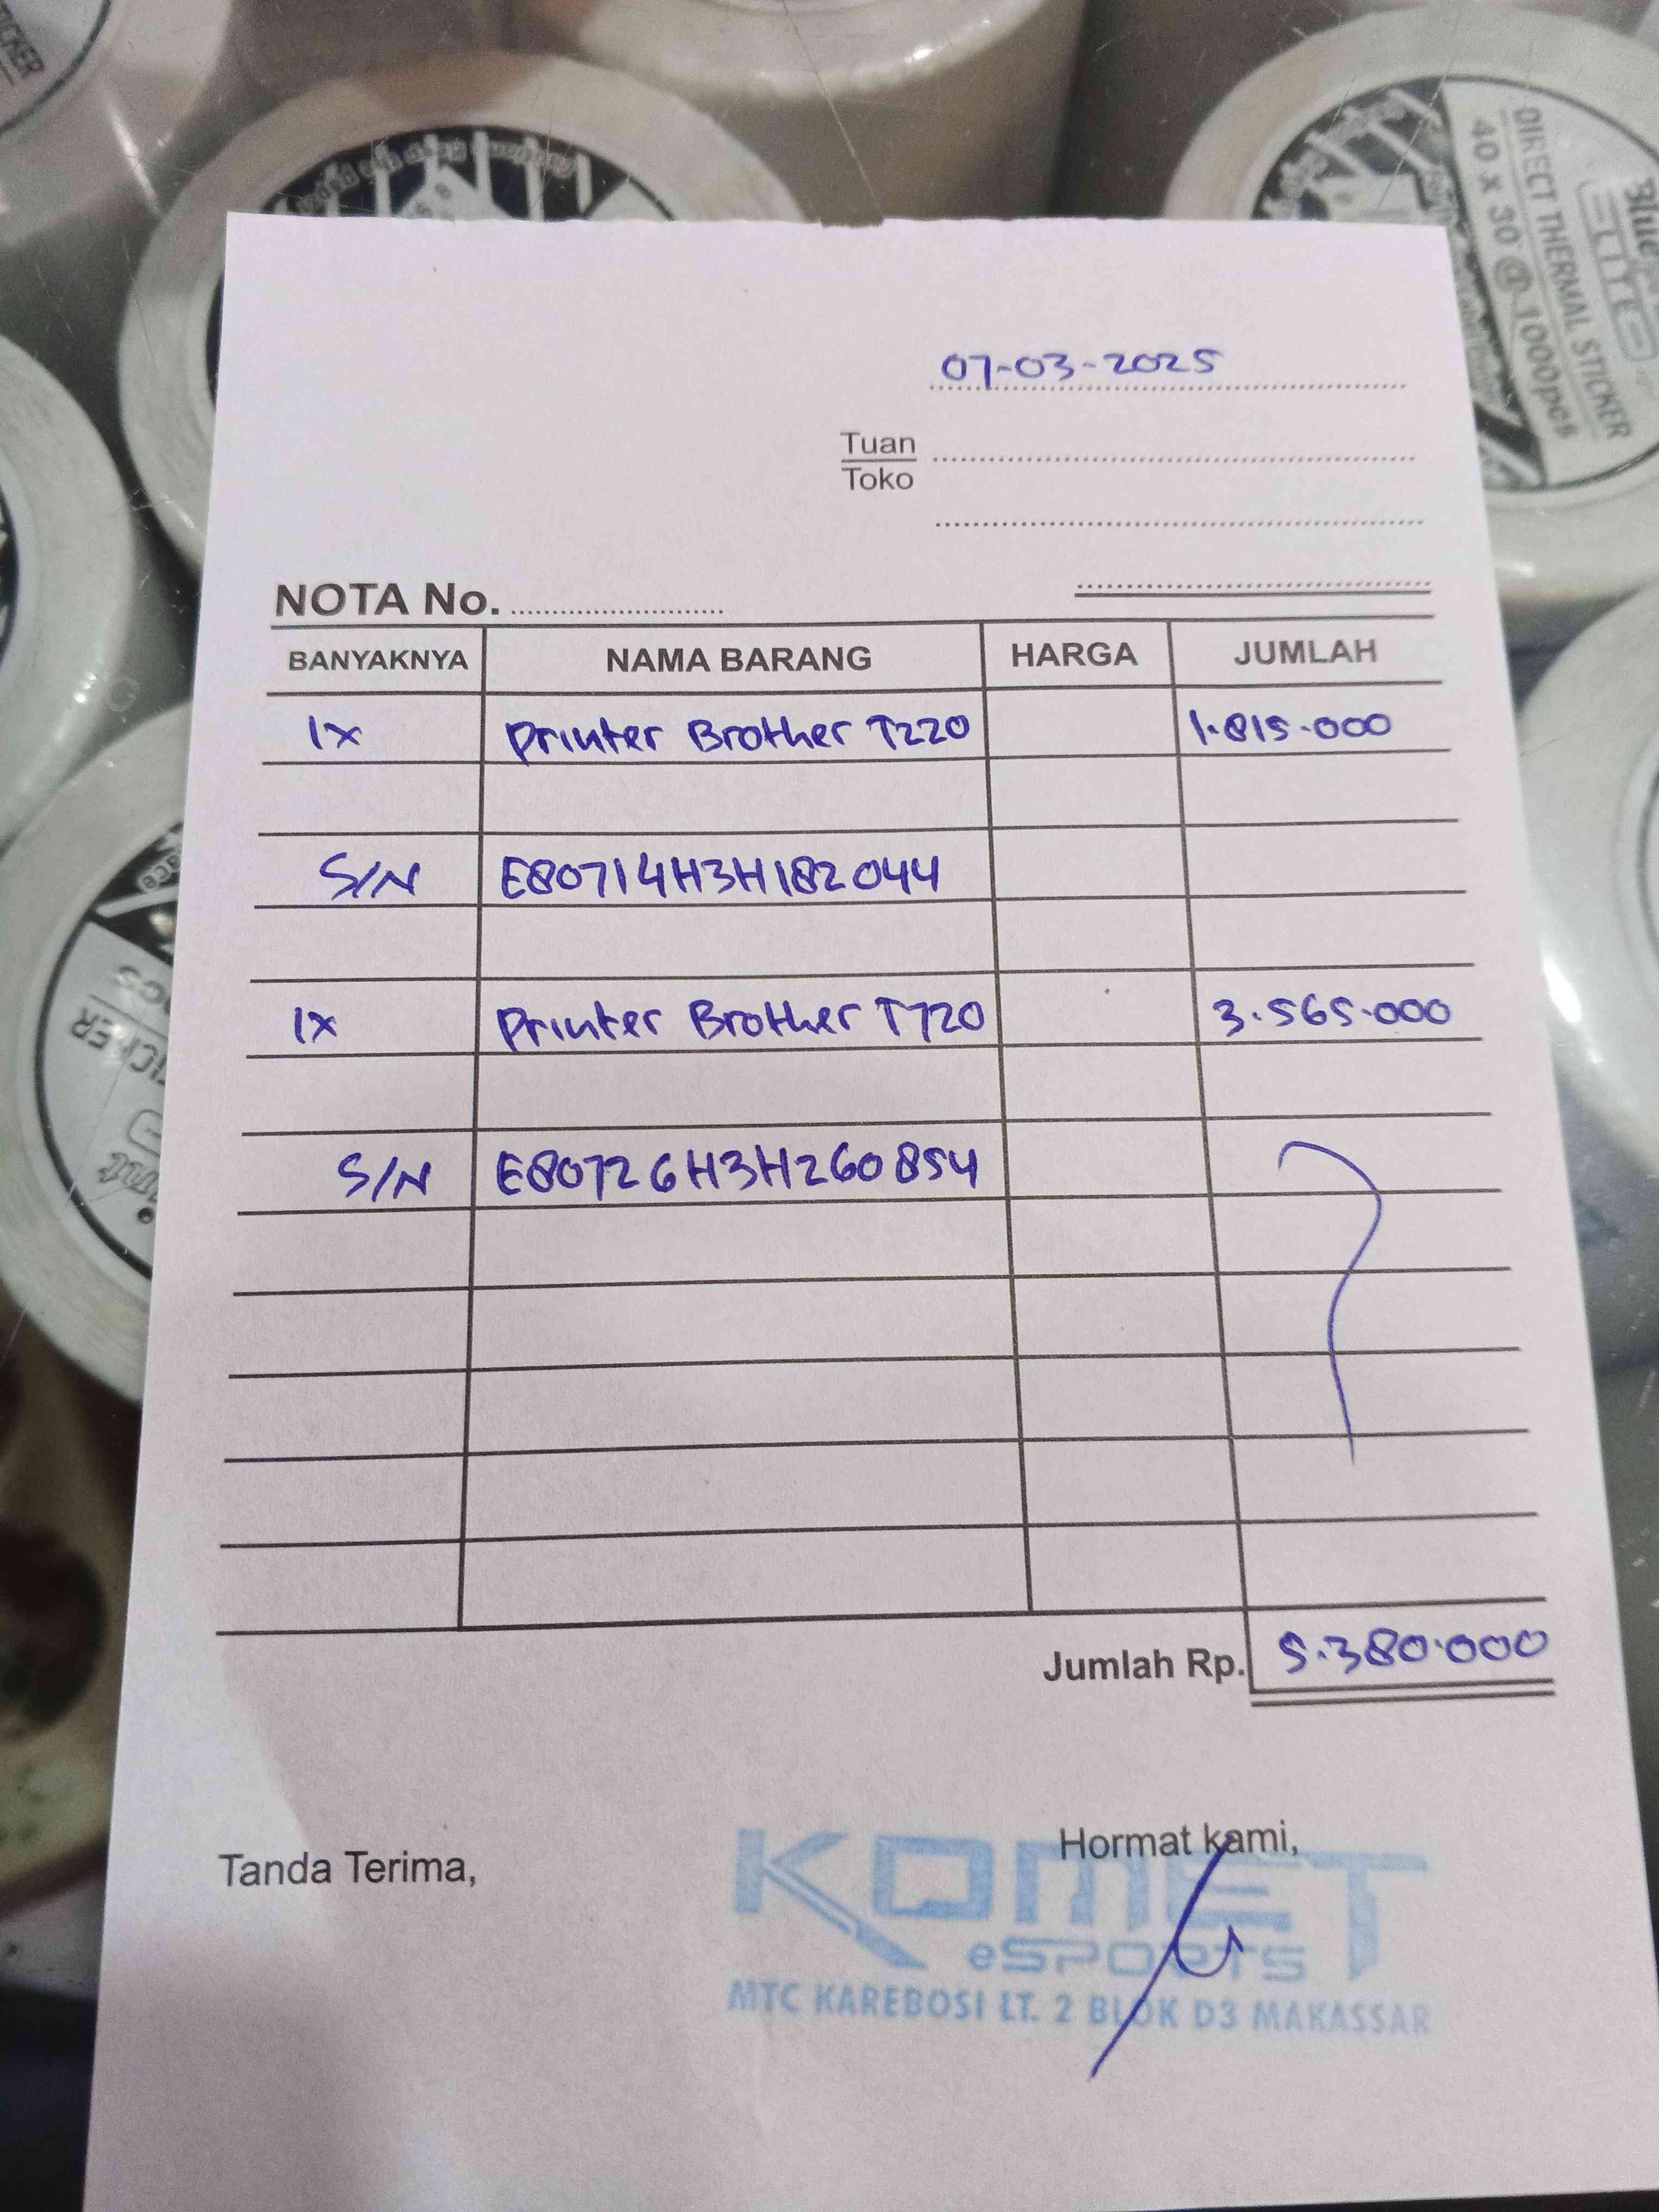 DIRECT THERMAL STICKER
40 x 30 @ 1000pcs
07-03-2025
Tuan
Toko
NOTA No.
BANYAKNYA NAMA BARANG HARGA JUMLAH
1x Printer Brother T220 1.815.000
S/N E80714H3H182044
1x Printer Brother T720 3.565.000
S/N E80726H3H260854
Jumlah Rp. 5.380.000
Tanda Terima, Hormat kami,
KOMET
eSPORTS
MTC KAREBOSI LT. 2 BLOK D3 MAKASSAR